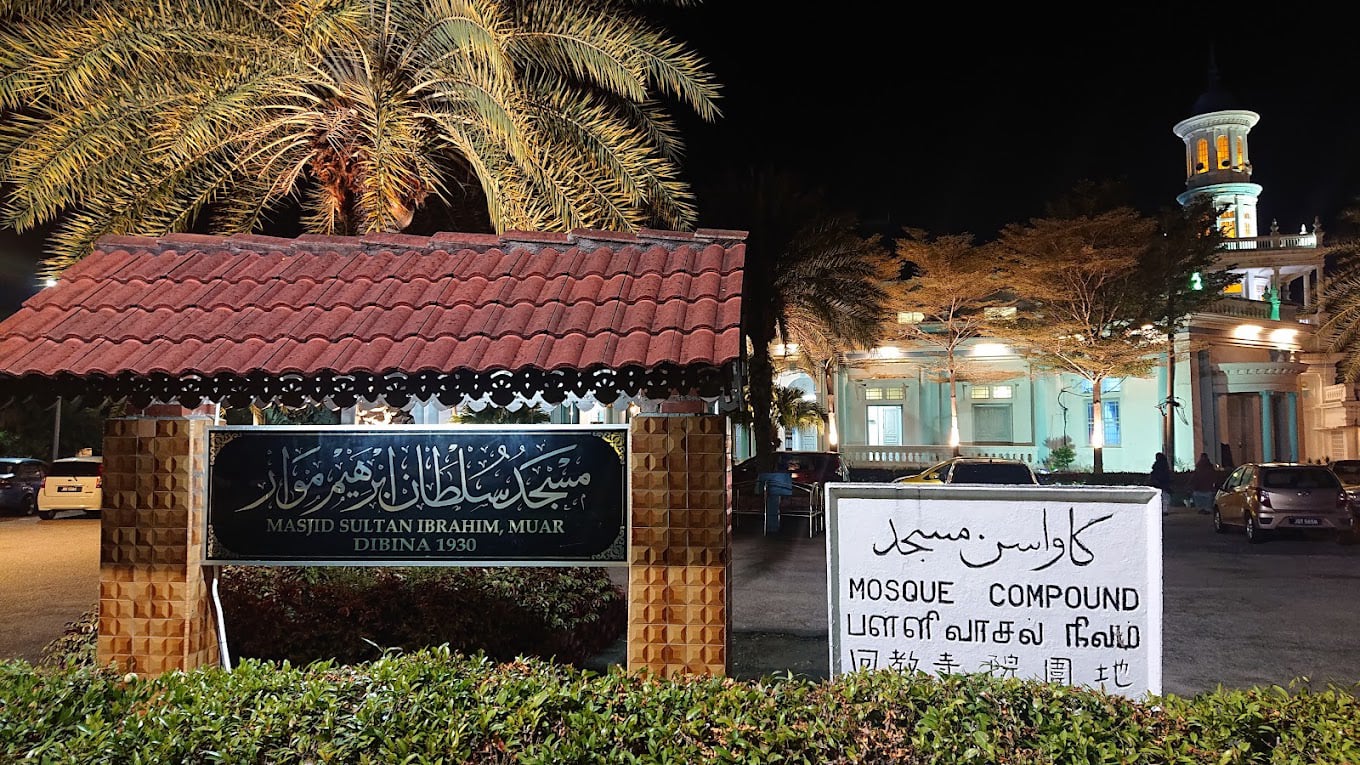 مسجد سلطان ابرهيم موار
MASJID SULTAN IBRAHIM, MUAR
DIBINA 1930
كاواسن مسجد
MOSQUE COMPOUND
பள்ளிவாசல் நிலம்
回教寺院園地